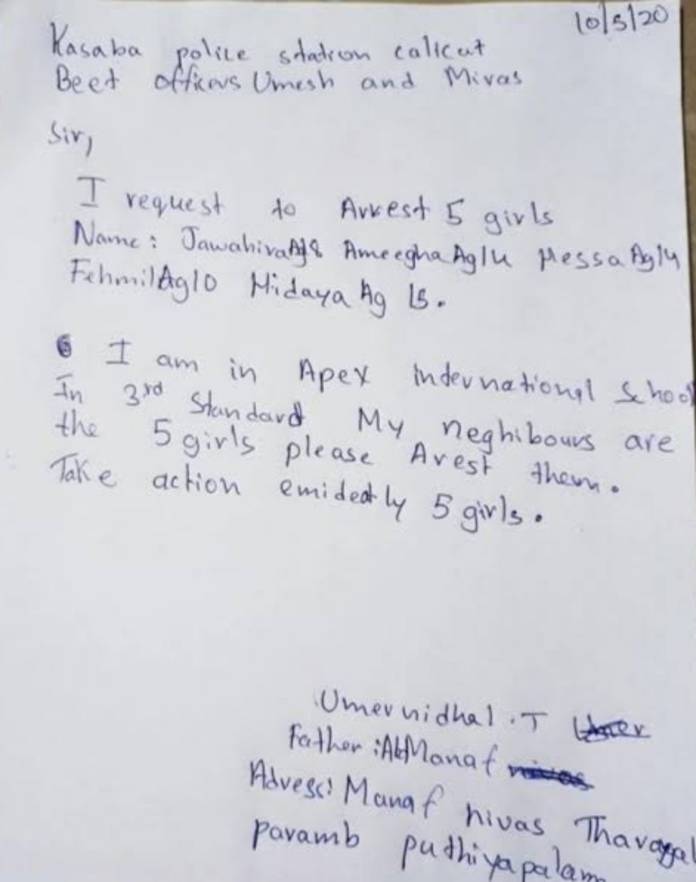 10/5/20
Kasaba police station calicut
Beet officers Umesh and Miras
Sir,
I request to Arrest 5 girls
Name: Jawahira Ag8 Ameegha Ag14 Hessa Ag14
Fehmil Ag10 Hidaya Ag 15.
I am in Apex international School
In 3rd Standard My neghibours are
the 5 girls please Arest them.
Take action emideatly 5 girls.
Umernidhal.T
Father: Manaf
Adress: Manaf nivas
paramb puthiyapalam